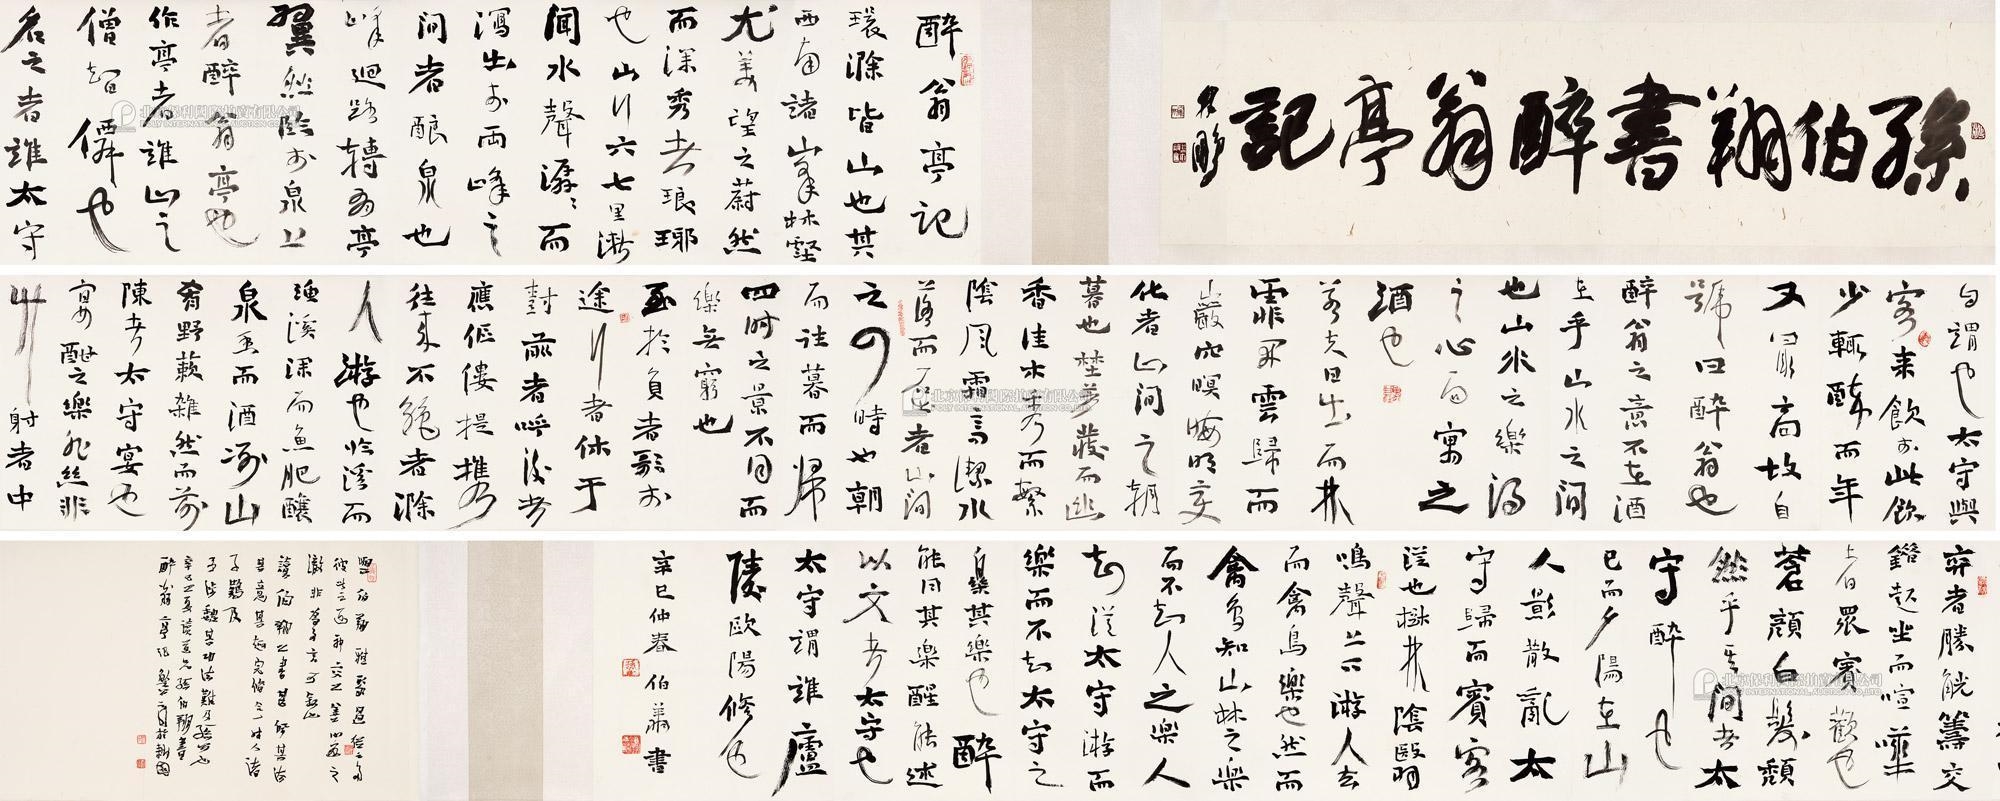 孫伯翔書醉翁亭記
林鵬
醉翁亭記
環滁皆山也其
西南諸峯林壑
尤美望之蔚然
而深秀者琅琊
也山行六七里漸
聞水聲潺々而
瀉出於兩峰之
間者釀泉也
峰迴路轉有亭
翼然臨於泉上
者醉翁亭也
作亭者誰山之
僧智僊也
名之者誰太守
自謂也太守與
客来飲於此飲
少輒醉而年
又最高故自
號曰醉翁也
醉翁之意不在酒
在乎山水之間
也山水之樂得
之心而寓之
酒也
若夫日出而林
霏開雲歸而
巖穴暝晦明變
化者山間之朝
暮也野芳發而幽
香佳木秀而繁
陰風霜高潔水
落而石出者山間
之四時也朝
而往暮而歸
四時之景不同而
樂無窮也
至於負者歌於
途行者休于
樹前者呼後者
應傴僂提攜
往来不絕者滁
人游也臨溪而
漁溪深而魚肥釀
泉香而酒洌山
肴野蔌雜然而前
陳者太守宴也
宴酣之樂非絲非
竹射者中
弈者勝觥籌交
錯起坐而喧嘩
者眾賓歡也
蒼顏白髮頹
然乎其間者太
守醉也
已而夕陽在山
人影散亂太
守歸而賓客
從也樹林陰翳
鳴聲上下游人去
而禽鳥樂也然而
禽鳥知山林之樂
而不知人之樂人
知從太守游而
樂而不知太守之
樂其樂也醉
能同其樂醒能述
以文者太守也
太守謂誰廬
陵歐陽修也
辛巳仲春 伯翔書
北京保利國際拍賣有限公司
POLY INTERNATIONAL AUCTION CO.,LTD.